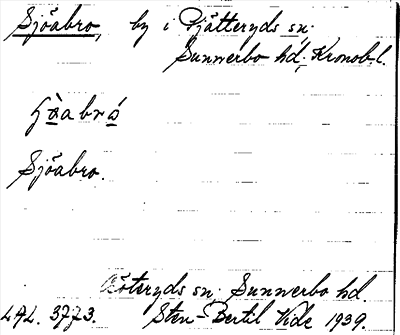 Sjöabro, by i Pjätteryds sn.
Sunnerbo hd, Kronob. l.
Sjöabro.
Göteryds sn. Sunnerbo hd.
LAL. 3773. Sten-Bertil Vide 1939.